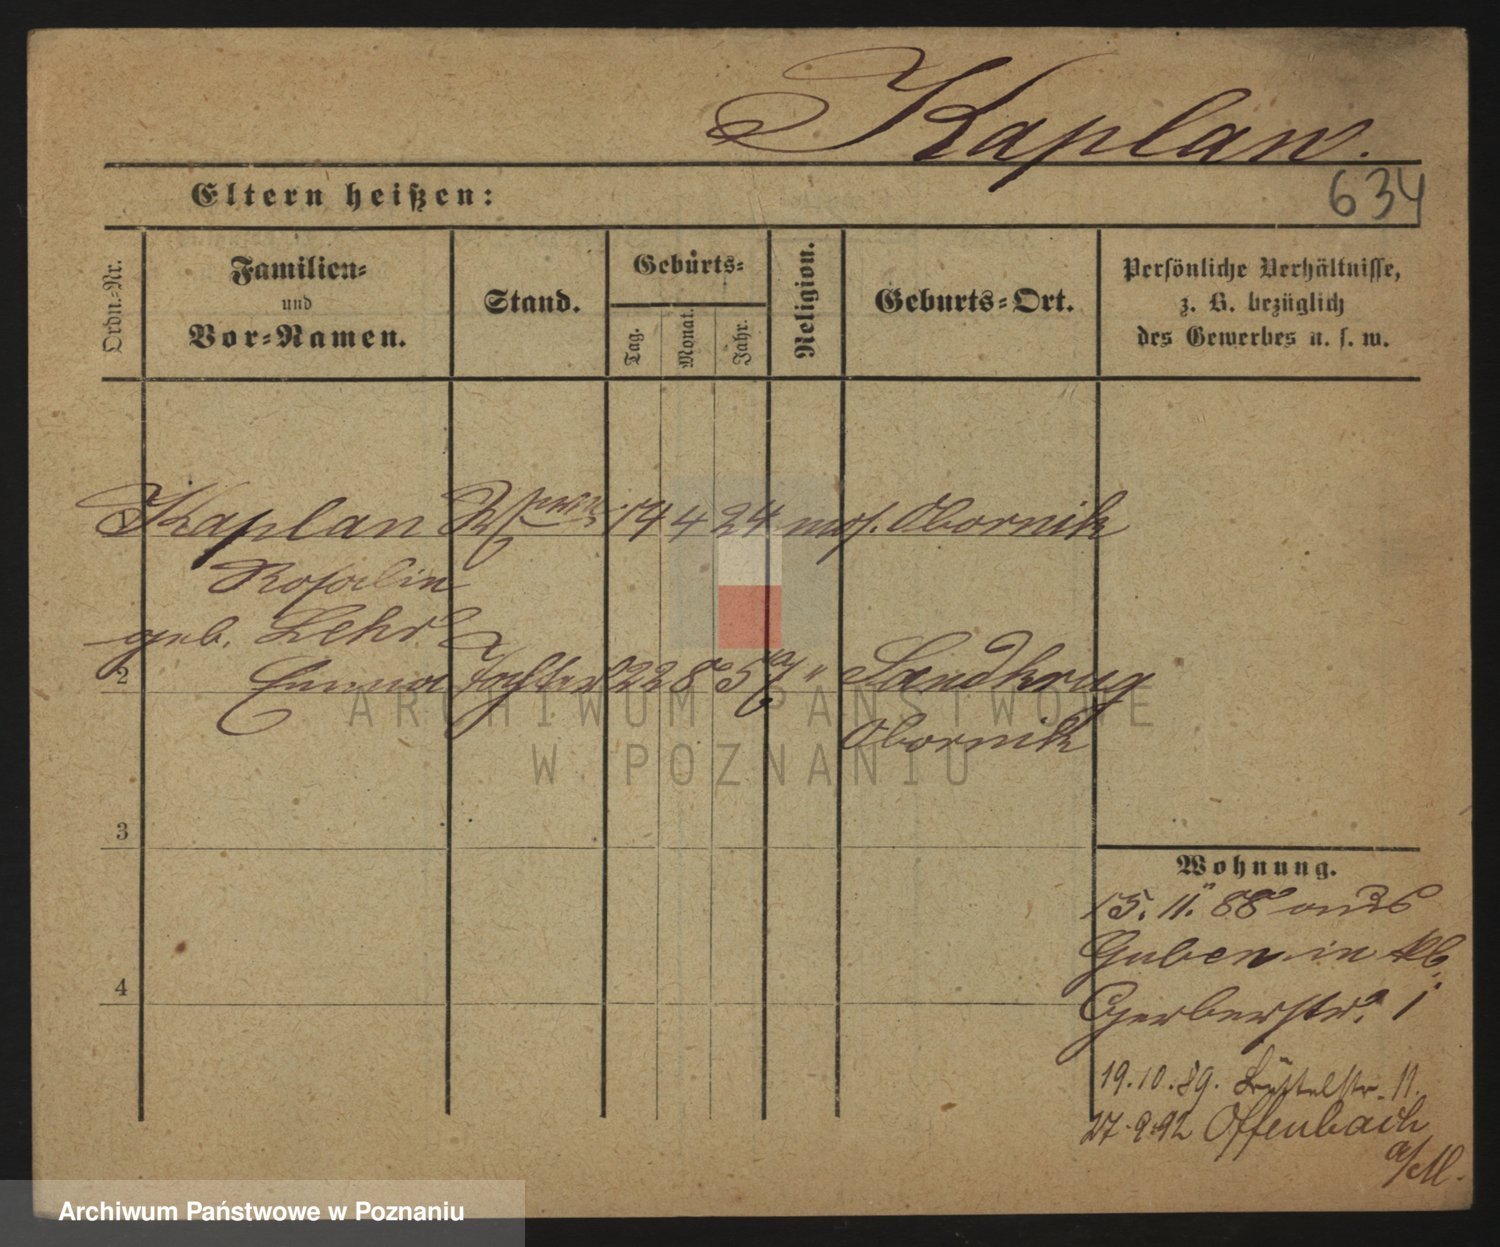 Kaplan.
Eltern heißen:
634
Ordn.=Nr.
Familien=
und
Vor=Namen.
Stand.
Geburts=
Tag.
Monat.
Jahr.
Religion.
Geburts=Ort.
Persönliche Verhältnisse,
z. B. bezüglich
des Gewerbes u. s. w.
1 Kaplan 14 4 24 mos. Obornik
Rosalin
geb. Lehr
2 Emma Tochter 22 8 57 " Sandkrug
Obornik
3
4
Wohnung.
15. 11. 88 aus
Guben in
Gerberstr. 1
19.10.89. 11.
27.9.92 Offenbach
a/M.
ARCHIWUM PAŃSTWOWE
W POZNANIU
Archiwum Państwowe w Poznaniu